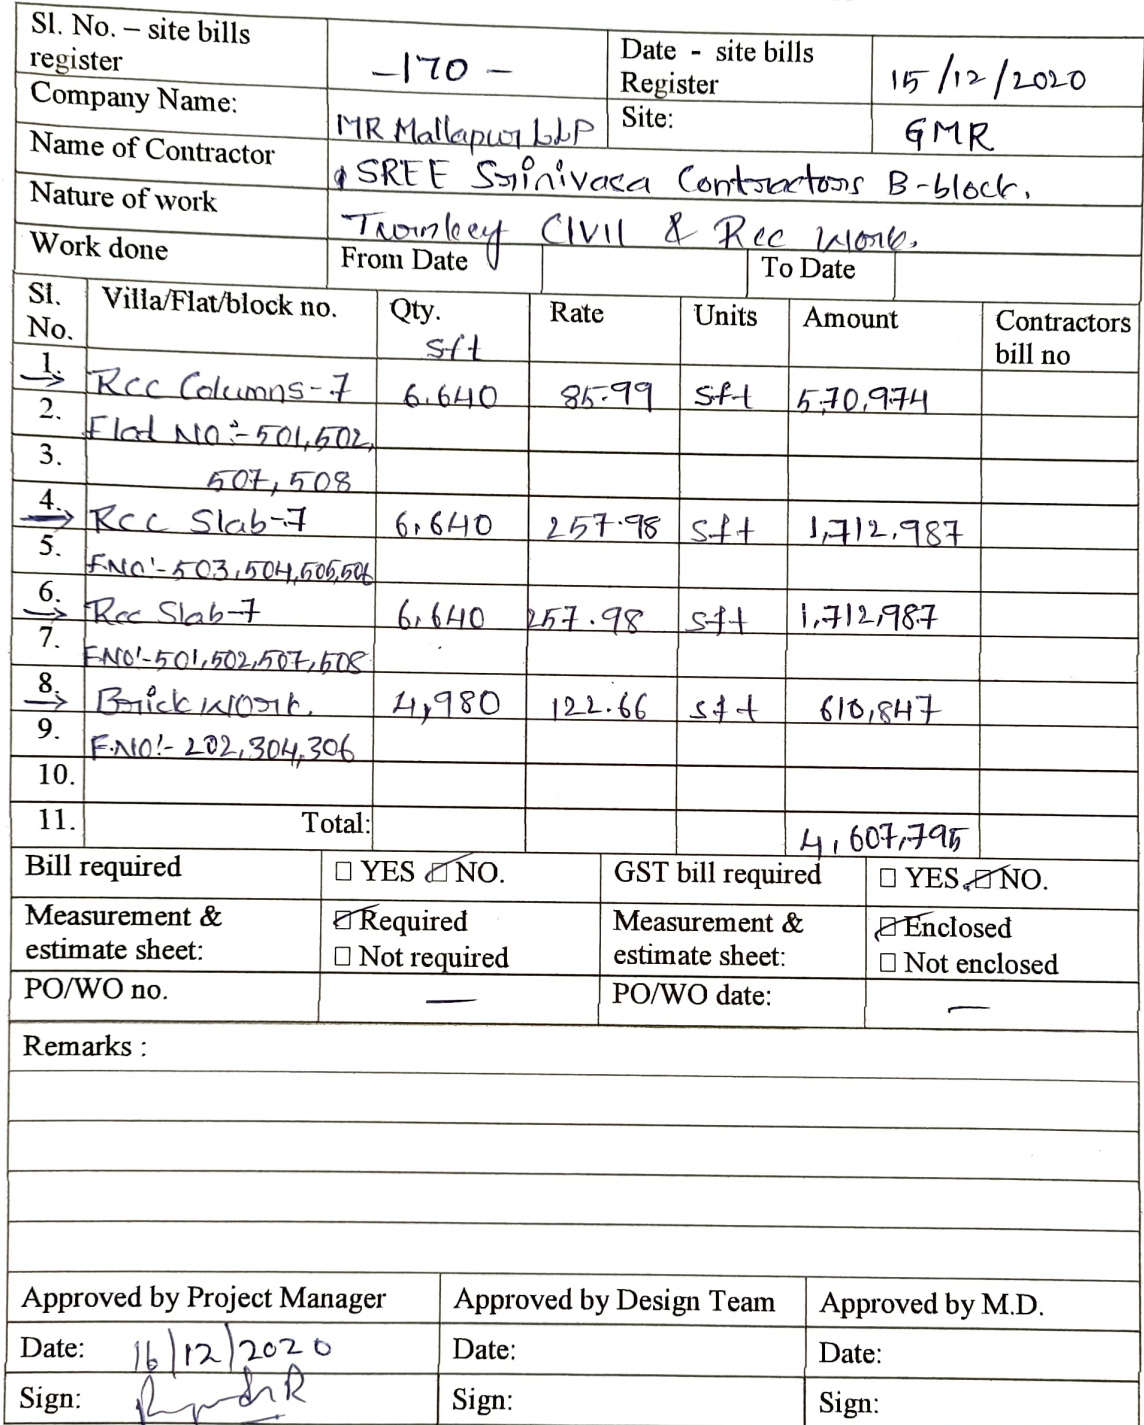 Sl. No. – site bills register -170- Date - site bills Register 15/12/2020
Company Name: MR Mallapur LLP Site: GMR
Name of Contractor SREE Srinivasa Contractors B-block.
Nature of work Turnkey CIVIL & Rcc work.
Work done From Date To Date
Sl. No. Villa/Flat/block no. Qty. sft Rate Units Amount Contractors bill no
1. Rcc Columns-7 6.640 85.99 sft 5,70,974
2. Flat NO:- 501,502,
3. 507, 508
4. RCC Slab-7 6,640 257.98 sft 1,712,987
5. F.NO:- 503,504,505,506
6. Rcc Slab-7 6,640 257.98 sft 1,712,987
7. F.NO:- 501,502,507,508
8. Brick work. 4,980 122.66 sft 610,847
9. F.NO:- 202,304,306
10.
11. Total: 4,607,795
Bill required □ YES ☑ NO. GST bill required □ YES ☑ NO.
Measurement & estimate sheet: ☑ Required □ Not required Measurement & estimate sheet: ☑ Enclosed □ Not enclosed
PO/WO no. — PO/WO date: —
Remarks :
Approved by Project Manager Approved by Design Team Approved by M.D.
Date: 16/12/2020 Date: Date:
Sign: Sign: Sign: